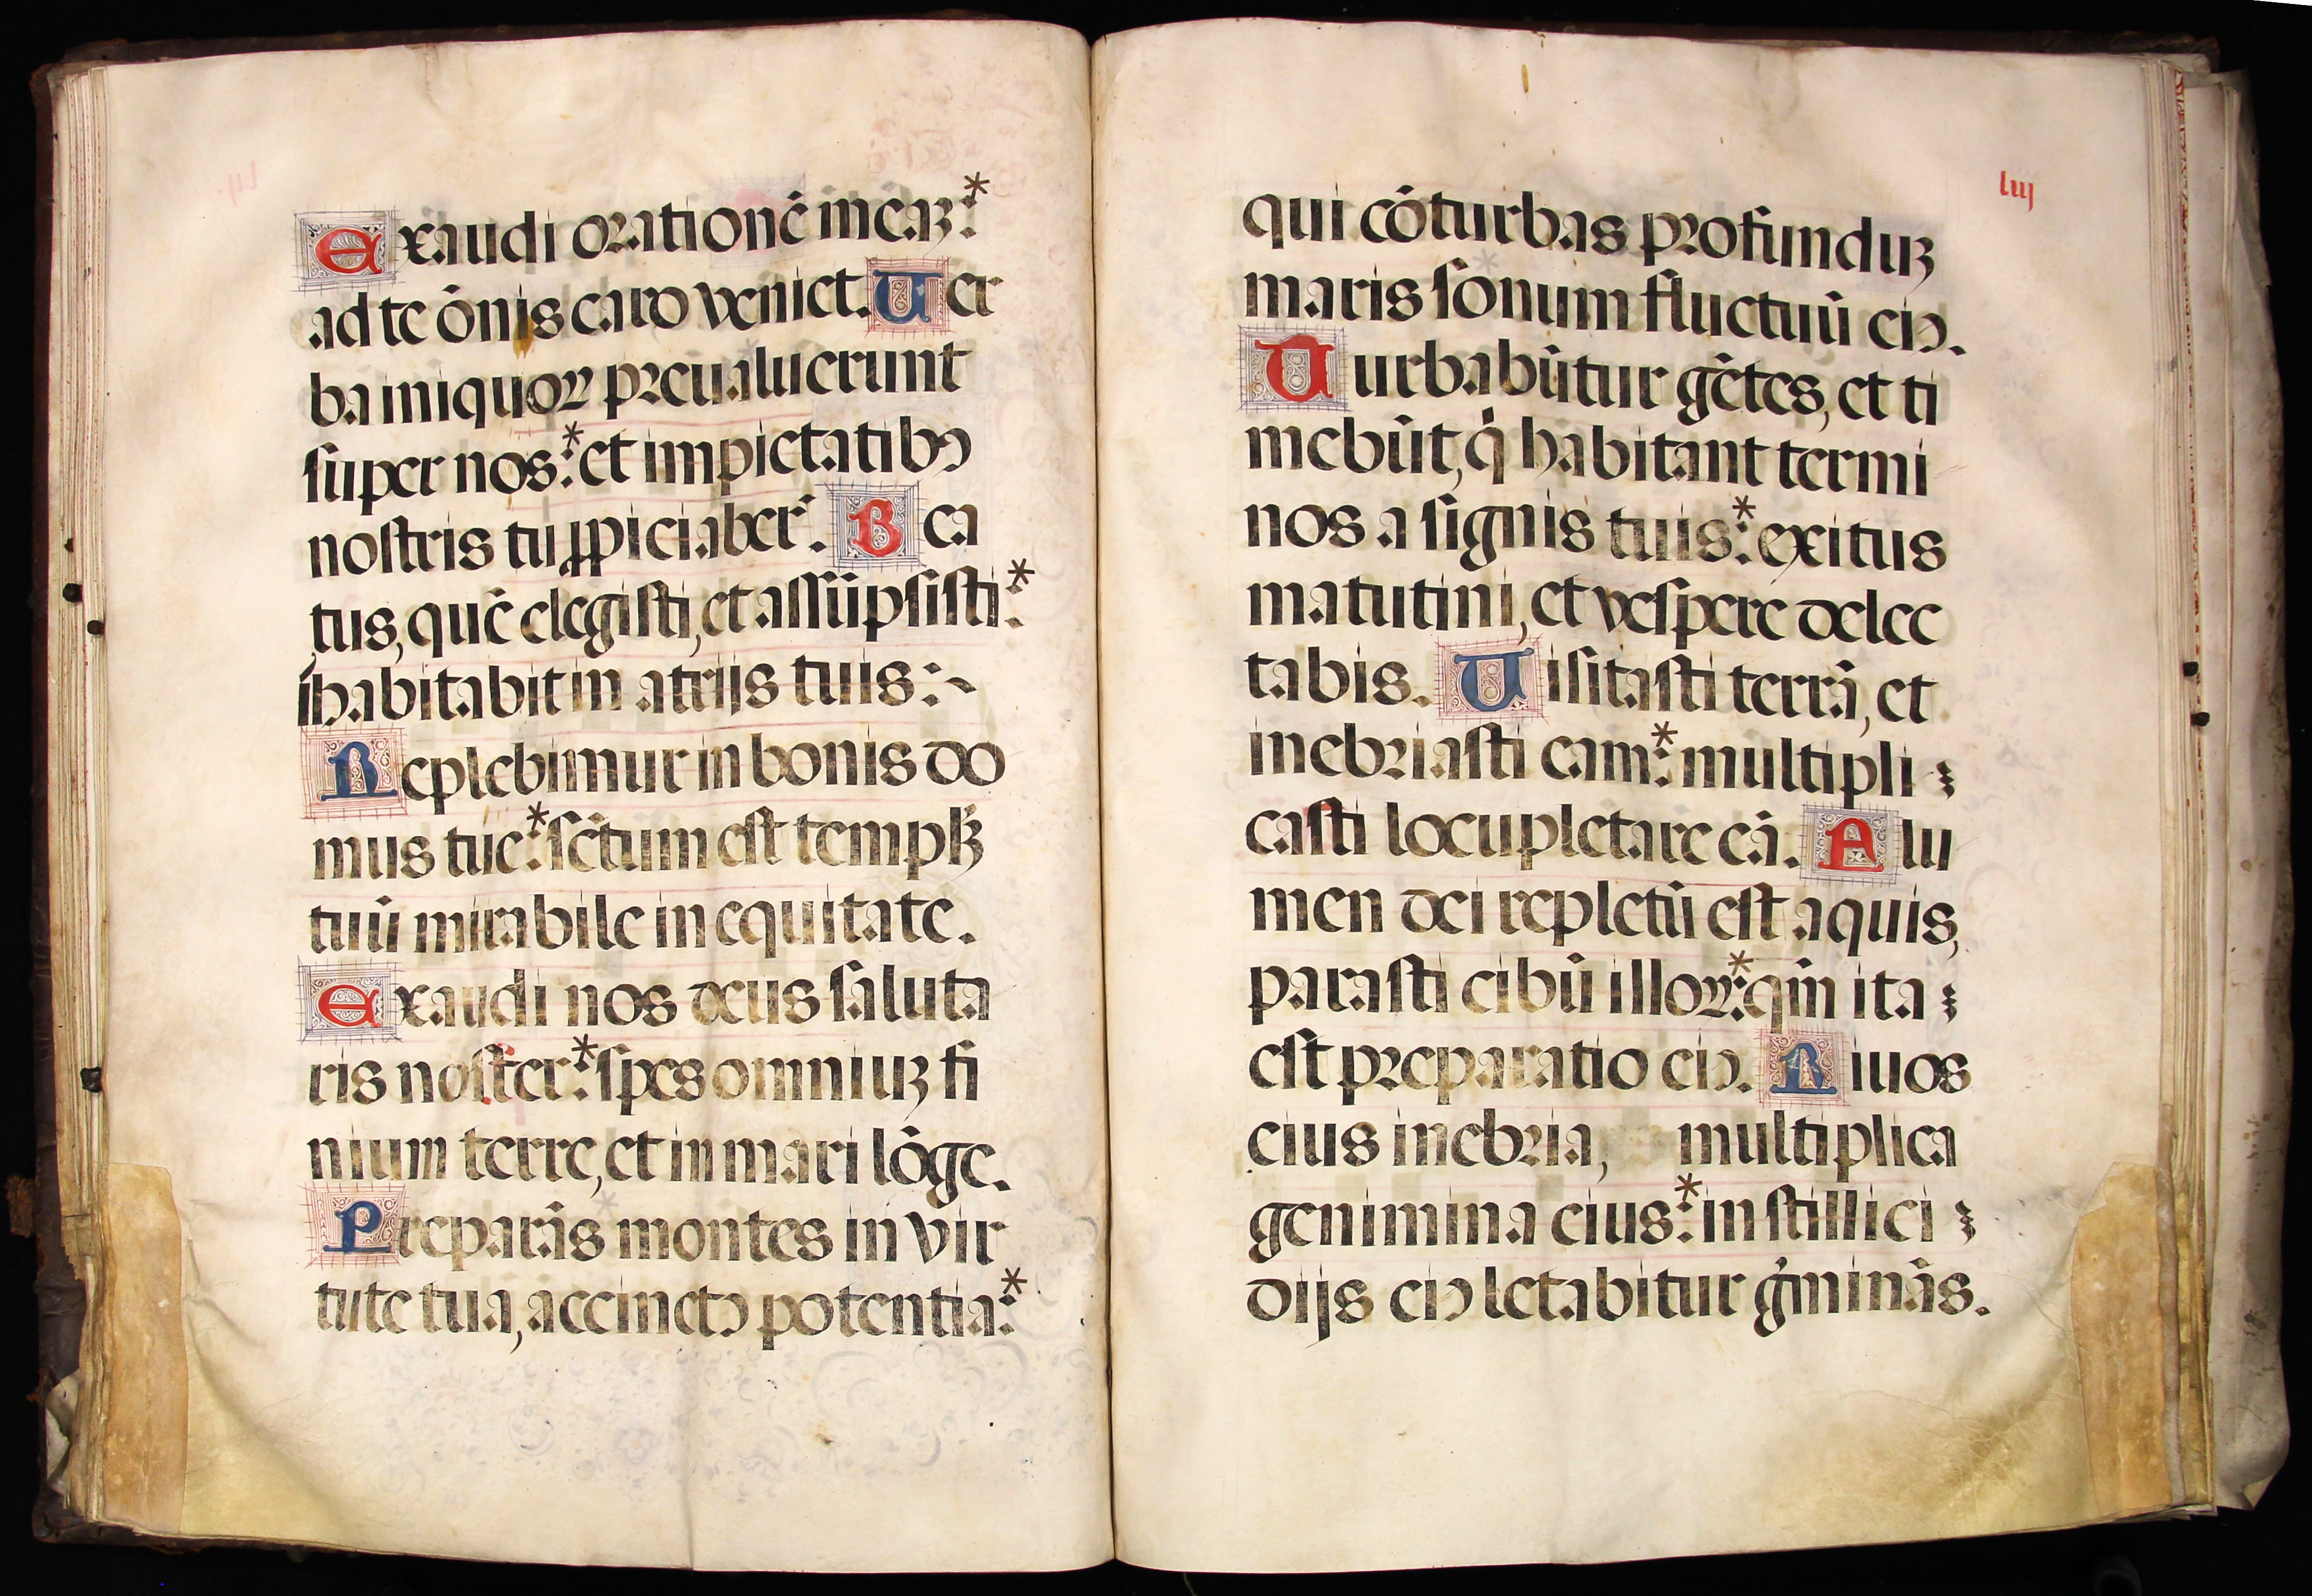 Exaudi orationē meaꝫ:*
ad te ōnis caro veniet. Uer
ba iniquoꝝ preualuerunt
super nos:* et impietatibꝰ
nostris tu ꝓpiciaber̄. Bea
tus, quē elegisti, et assūpsisti:*
inhabitabit in atrijs tuis:~
Replebimur in bonis do
mus tue:* sc̄tum est templꝫ
tuū mirabile in equitate.
Exaudi nos deus saluta
ris noster:* spes omniuꝫ fi
nium terre, et in mari lōge.
Preparās montes in vir
tute tua, accinctꝰ potentia:*
liij
qui cōturbas profunduꝫ
maris sonum fluctuū eiꝰ.
Turbabūtur gētes, et ti
mebūt, qͥ habitant termi
nos a signis tuis:* exitus
matutini, et vespere delec
tabis. Uisitasti terrā, et
inebriasti eam:* multipli
casti locupletare eā. Flu
men dei repletū est aquis,
parasti cibū illoꝝ:* qm̄ ita
est preparatio eiꝰ. Riuos
eius inebria, multiplica
genimina eius:* in stillici
dijs eiꝰ letabitur g̾minās.